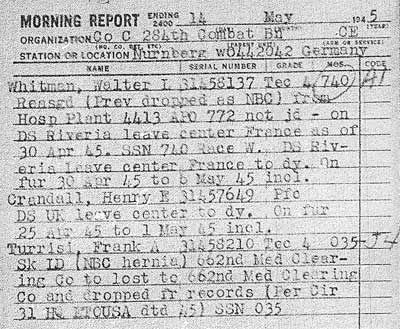 MORNING REPORT ENDING 2400 14 May 1945
ORGANIZATION Co C 284th Combat Bn CE
STATION OR LOCATION Nurnberg Germany
NAME SERIAL NUMBER GRADE MOS. CODE
Whitman, Walter L 31458137 Tec 4 740 A1
Reasgd (Prev dropped as NBC) from
Hosp Plant 4413 APO 772 not jd - on
DS Riveria leave center France as of
30 Apr 45. SSN 740 Race W. DS Riv-
eria Leave center France to dy. On
fur 30 apr 45 to 6 May 45 incl.
Crandall, Henry E 31457649 Pfc
DS UK leave center to dy. On fur
25 Apr 45 to 1 May 45 incl.
Turrisi, Frank A 31458210 Tec 4 035
Sk LD (NBC hernia) 662nd Med Clear-
ing Co to lost to 662nd Med Clearing
Co and dropped fr records (Per Cir
31 HQ ETOUSA dtd 45) SSN 035